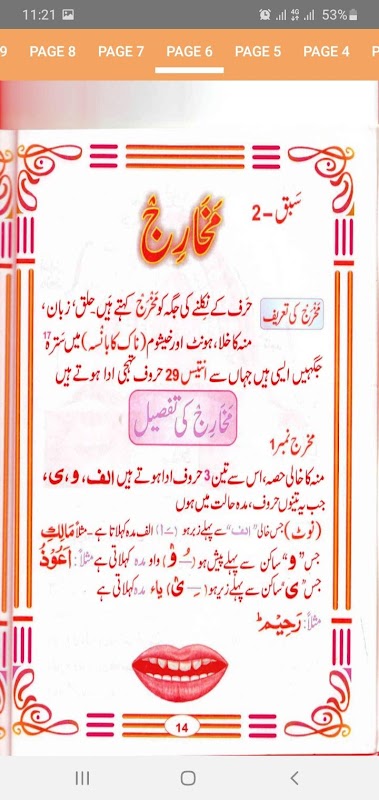 11:21 53%
9 PAGE 8 PAGE 7 PAGE 6 PAGE 5 PAGE 4 P
سَبق - 2
مَخَارِجْ
مَخْرَجْ کی تعریف حَرف کے نِکلنے کی جگہ کو مَخْرَجْ کہتے ہیں۔ حلق، زبان،
منہ کا خلا، ہونٹ اور خیشوم (ناک کا بانسہ) میں سَترہ 17
جگہیں ایسی ہیں جہاں سے اَنتیس 29 حروف تہجی ادا ہوتے ہیں
مَخَارِجْ کی تفصیل
مخرج نمبر 1
منہ کا خالی حصہ، اس سے تین 3 حروف ادا ہوتے ہیں الف، و، ی،
جب یہ تینوں حروف، مدہ حالت میں ہوں
(نوٹ) جس خالی "الف" سے پہلے زبر ہو (ـَـ ا) الف مدہ کہلاتا ہے - مثلاً مَالِكِ
جس "و" ساکن سے پہلے پیش ہو (ـُـ وْ) واو مدہ کہلاتی ہے مثلاً: اَعُوْذُ
جس "ی" ساکن سے پہلے زیر ہو (ـِـ یْ) یاء مدہ کہلاتی ہے
مثلاً: رَحِيْمٌ
14